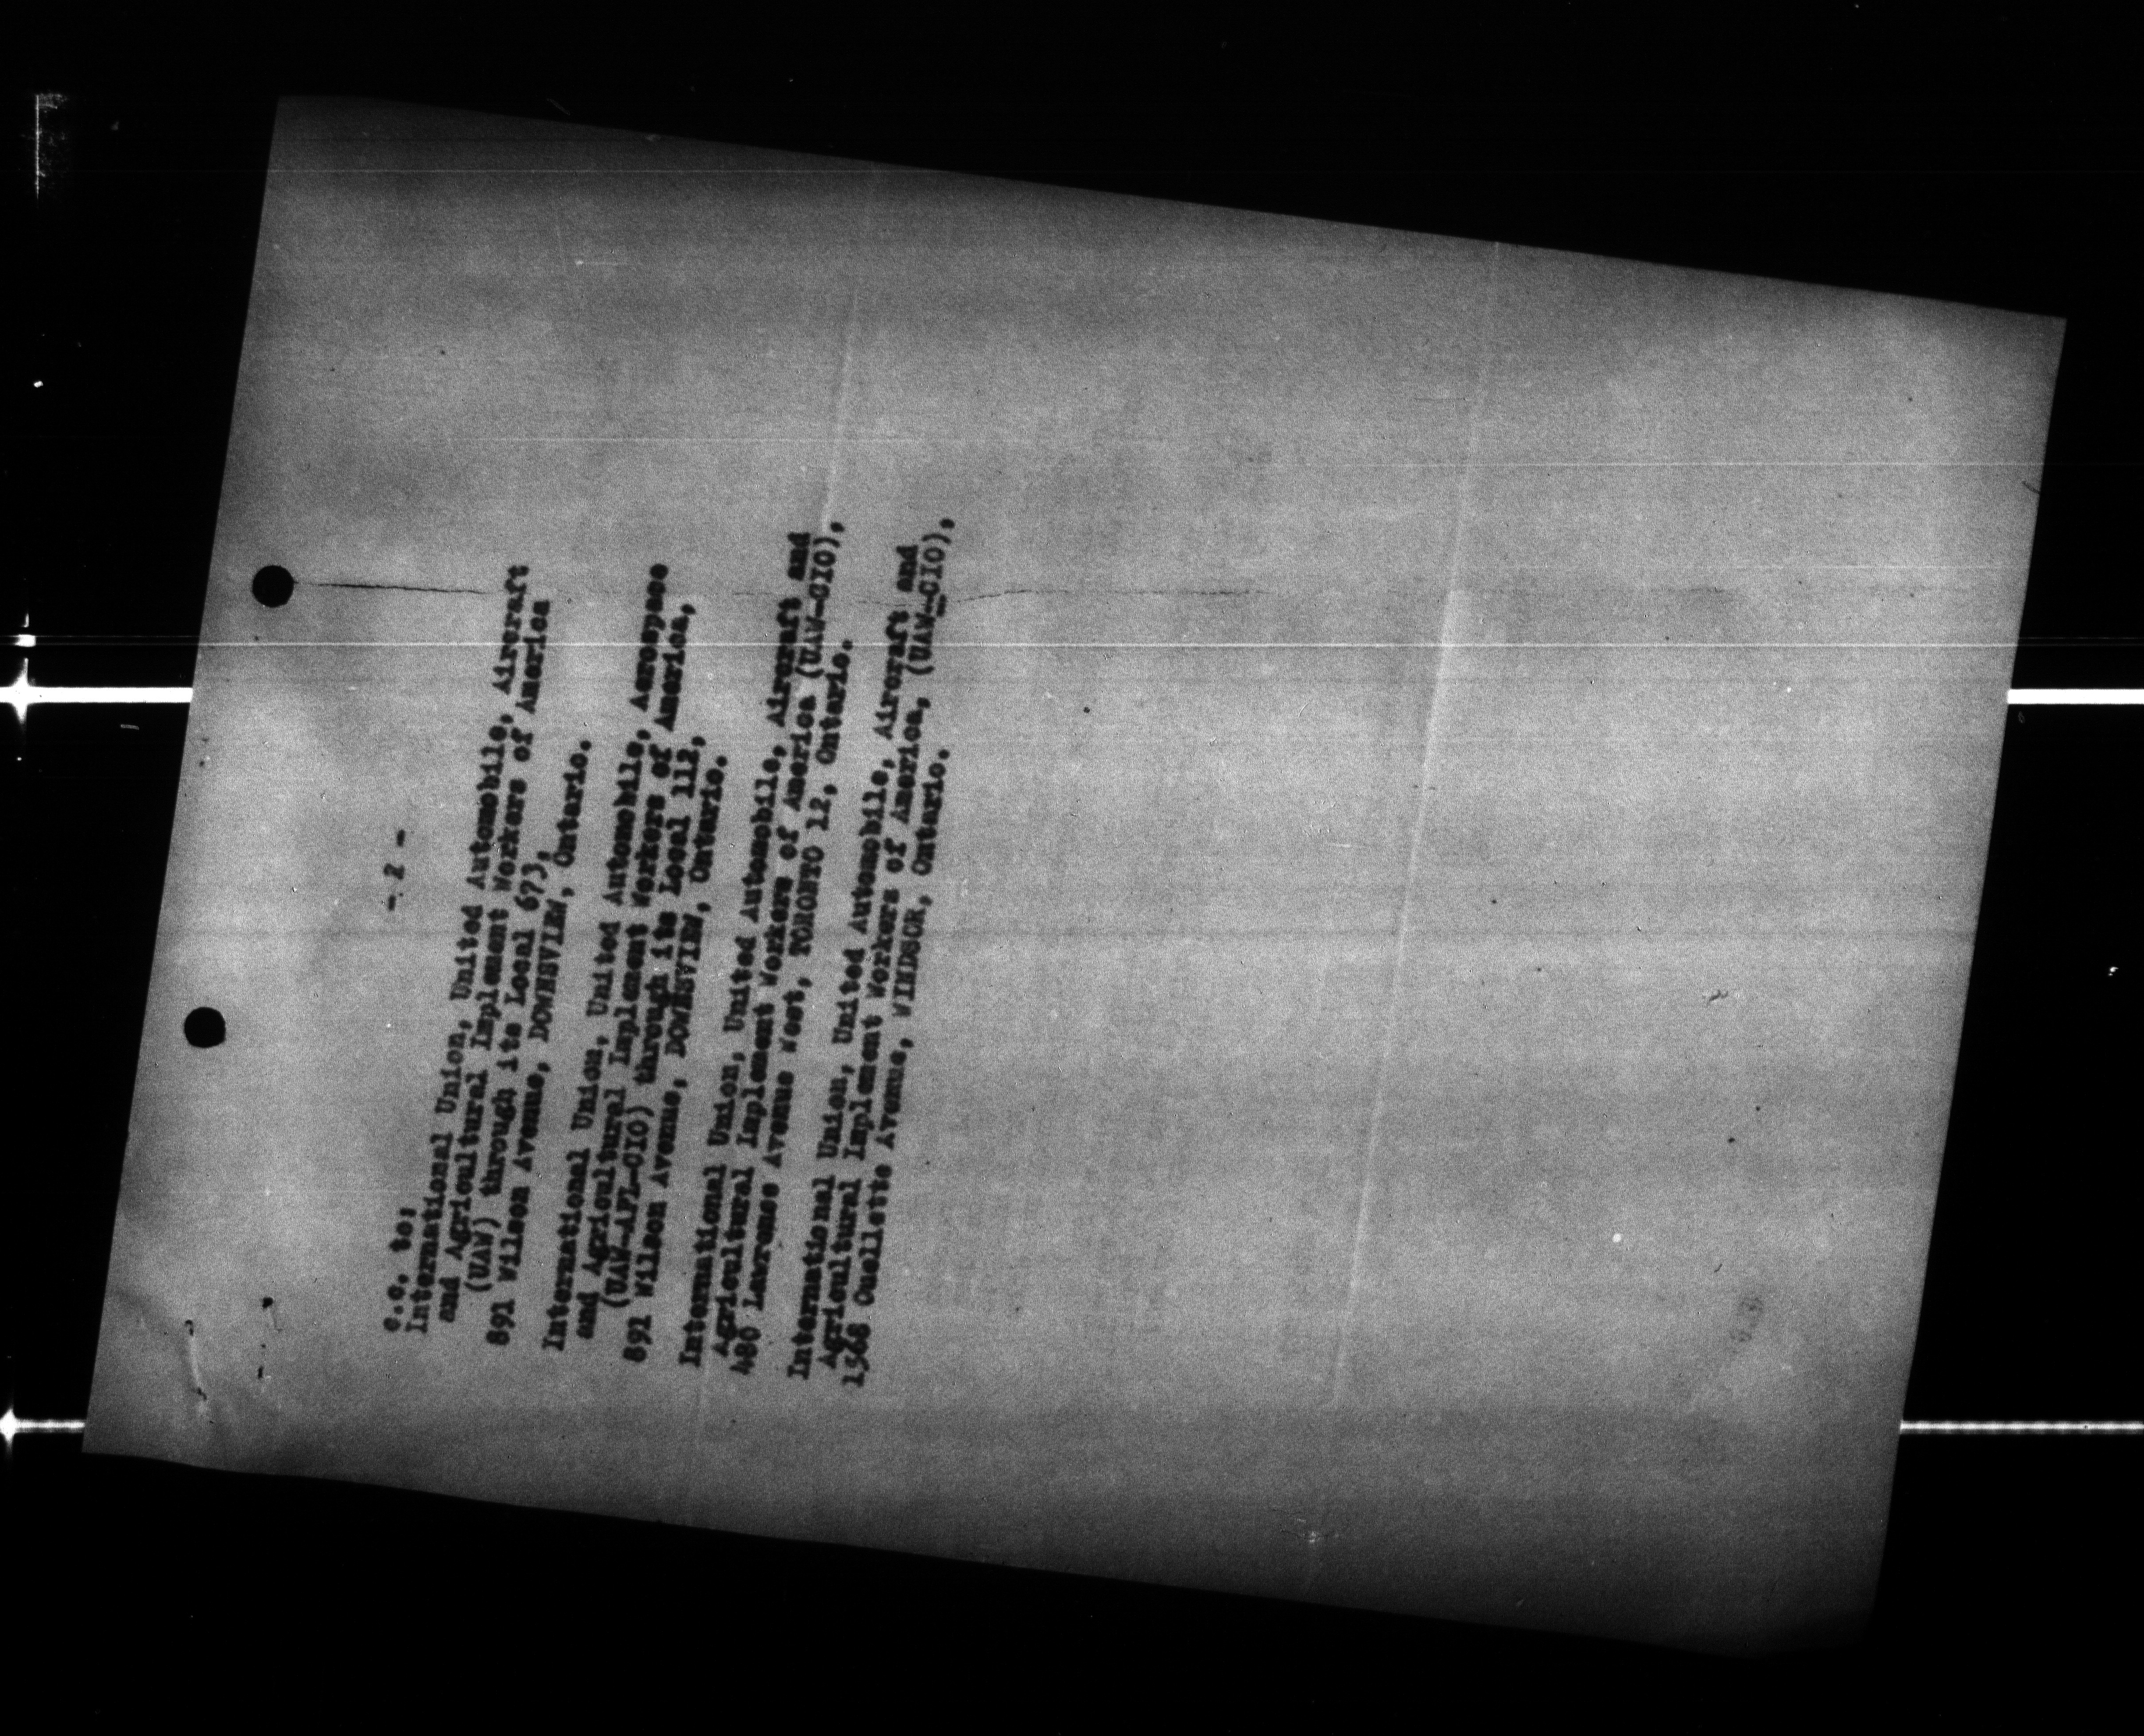 - 2 -
c.c. to:
International Union, United Automobile, Aircraft
and Agricultural Implement Workers of America
(UAW) through its Local 673,
891 Wilson Avenue, DOWNSVIEW, Ontario.
International Union, United Automobile, Aerospace
and Agricultural Implement Workers of America,
(UAW-AFL-CIO) through its Local 112,
891 Wilson Avenue, DOWNSVIEW, Ontario.
International Union, United Automobile, Aircraft and
Agricultural Implement Workers of America (UAW-CIO),
480 Lawrence Avenue West, TORONTO 12, Ontario.
International Union, United Automobile, Aircraft and
Agricultural Implement Workers of America, (UAW-CIO),
1568 Ouellette Avenue, WINDSOR, Ontario.